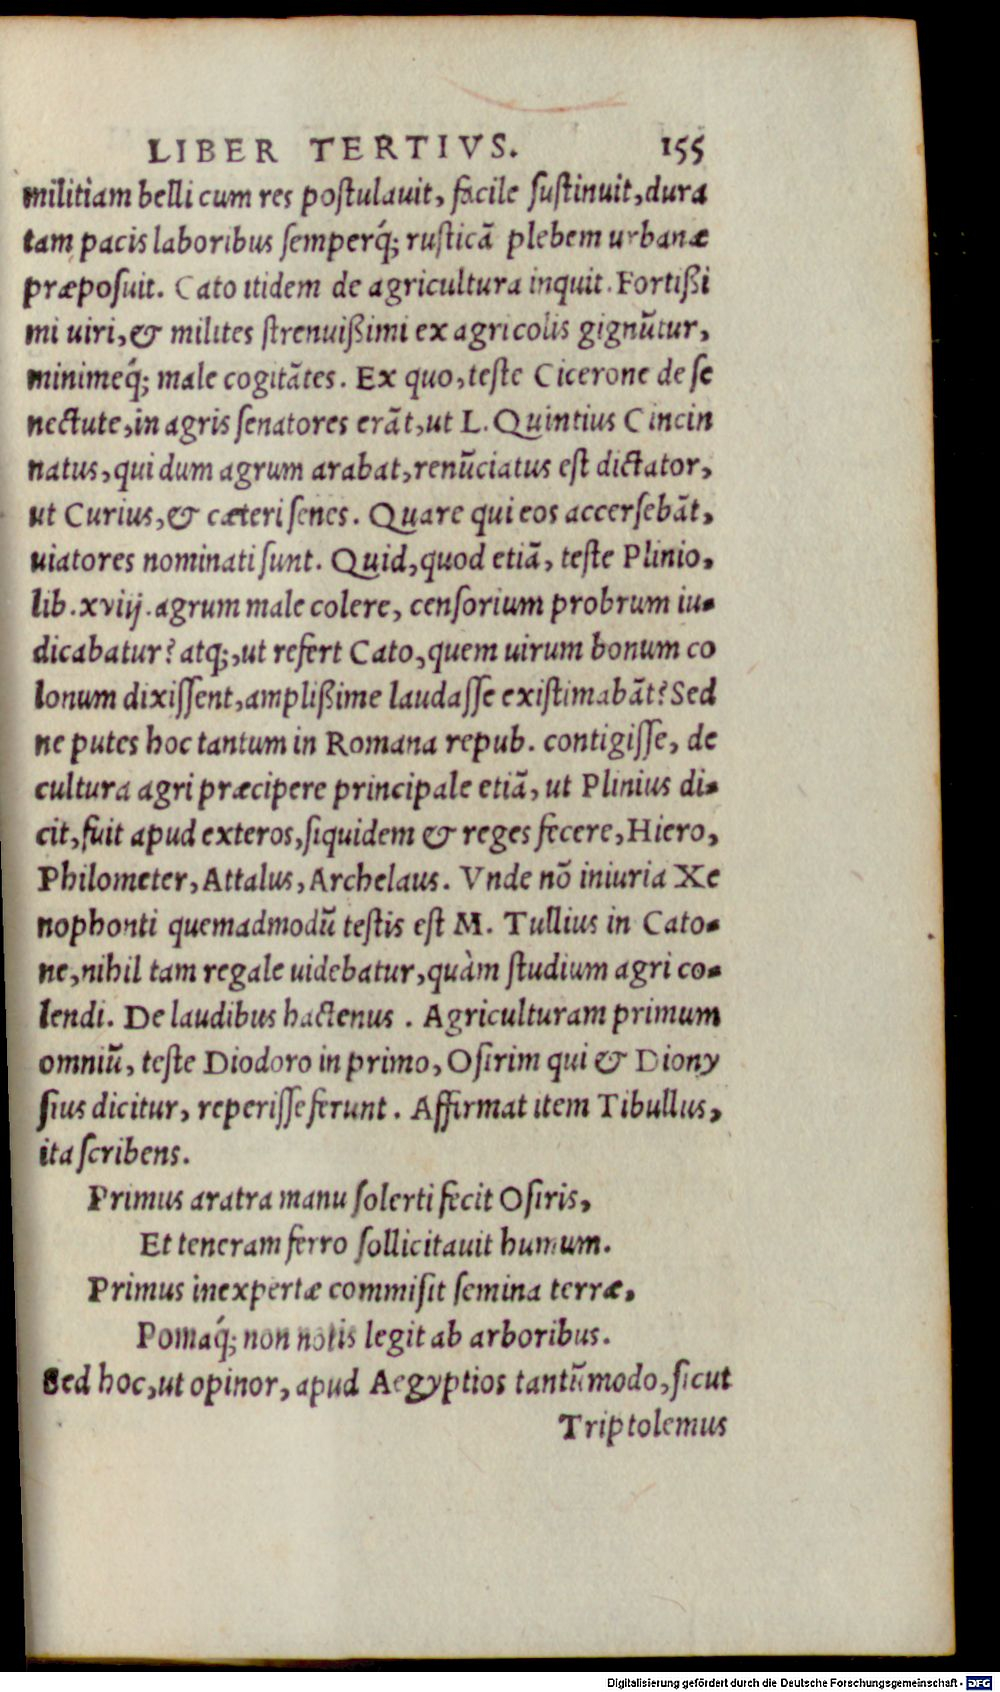 LIBER TERTIVS. 155
militiam belli cum res postulauit, facile sustinuit, dura
tam pacis laboribus semperq́; rusticā plebem urbanæ
præposuit. Cato itidem de agricultura inquit. Fortißi
mi uiri, & milites strenuißimi ex agricolis gignūtur,
minimeq́; male cogitātes. Ex quo, teste Cicerone de se
nectute, in agris senatores erāt, ut L. Quintius Cincin
natus, qui dum agrum arabat, renūciatus est dictator,
ut Curius, & cæteri senes. Quare qui eos accersebāt,
uiatores nominati sunt. Quid, quod etiā, teste Plinio,
lib. xviij. agrum male colere, censorium probrum iu-
dicabatur? atq;, ut refert Cato, quem uirum bonum co
lonum dixissent, amplißime laudasse existimabāt? Sed
ne putes hoc tantum in Romana repub. contigisse, de
cultura agri præcipere principale etiā, ut Plinius di-
cit, fuit apud exteros, siquidem & reges fecere, Hiero,
Philometer, Attalus, Archelaus. Vnde nō iniuria Xe
nophonti quemadmodū testis est M. Tullius in Cato-
ne, nihil tam regale uidebatur, quàm studium agri co-
lendi. De laudibus hactenus. Agriculturam primum
omniū, teste Diodoro in primo, Osirim qui & Diony
sius dicitur, reperisse ferunt. Affirmat item Tibullus,
ita scribens.
Primus aratra manu solerti fecit Osiris,
Et teneram ferro sollicitauit humum.
Primus inexpertæ commisit semina terræ,
Pomaq́; non notis legit ab arboribus.
Sed hoc, ut opinor, apud Aegyptios tantūmodo, sicut
Triptolemus
Digitalisierung gefördert durch die Deutsche Forschungsgemeinschaft - DFG